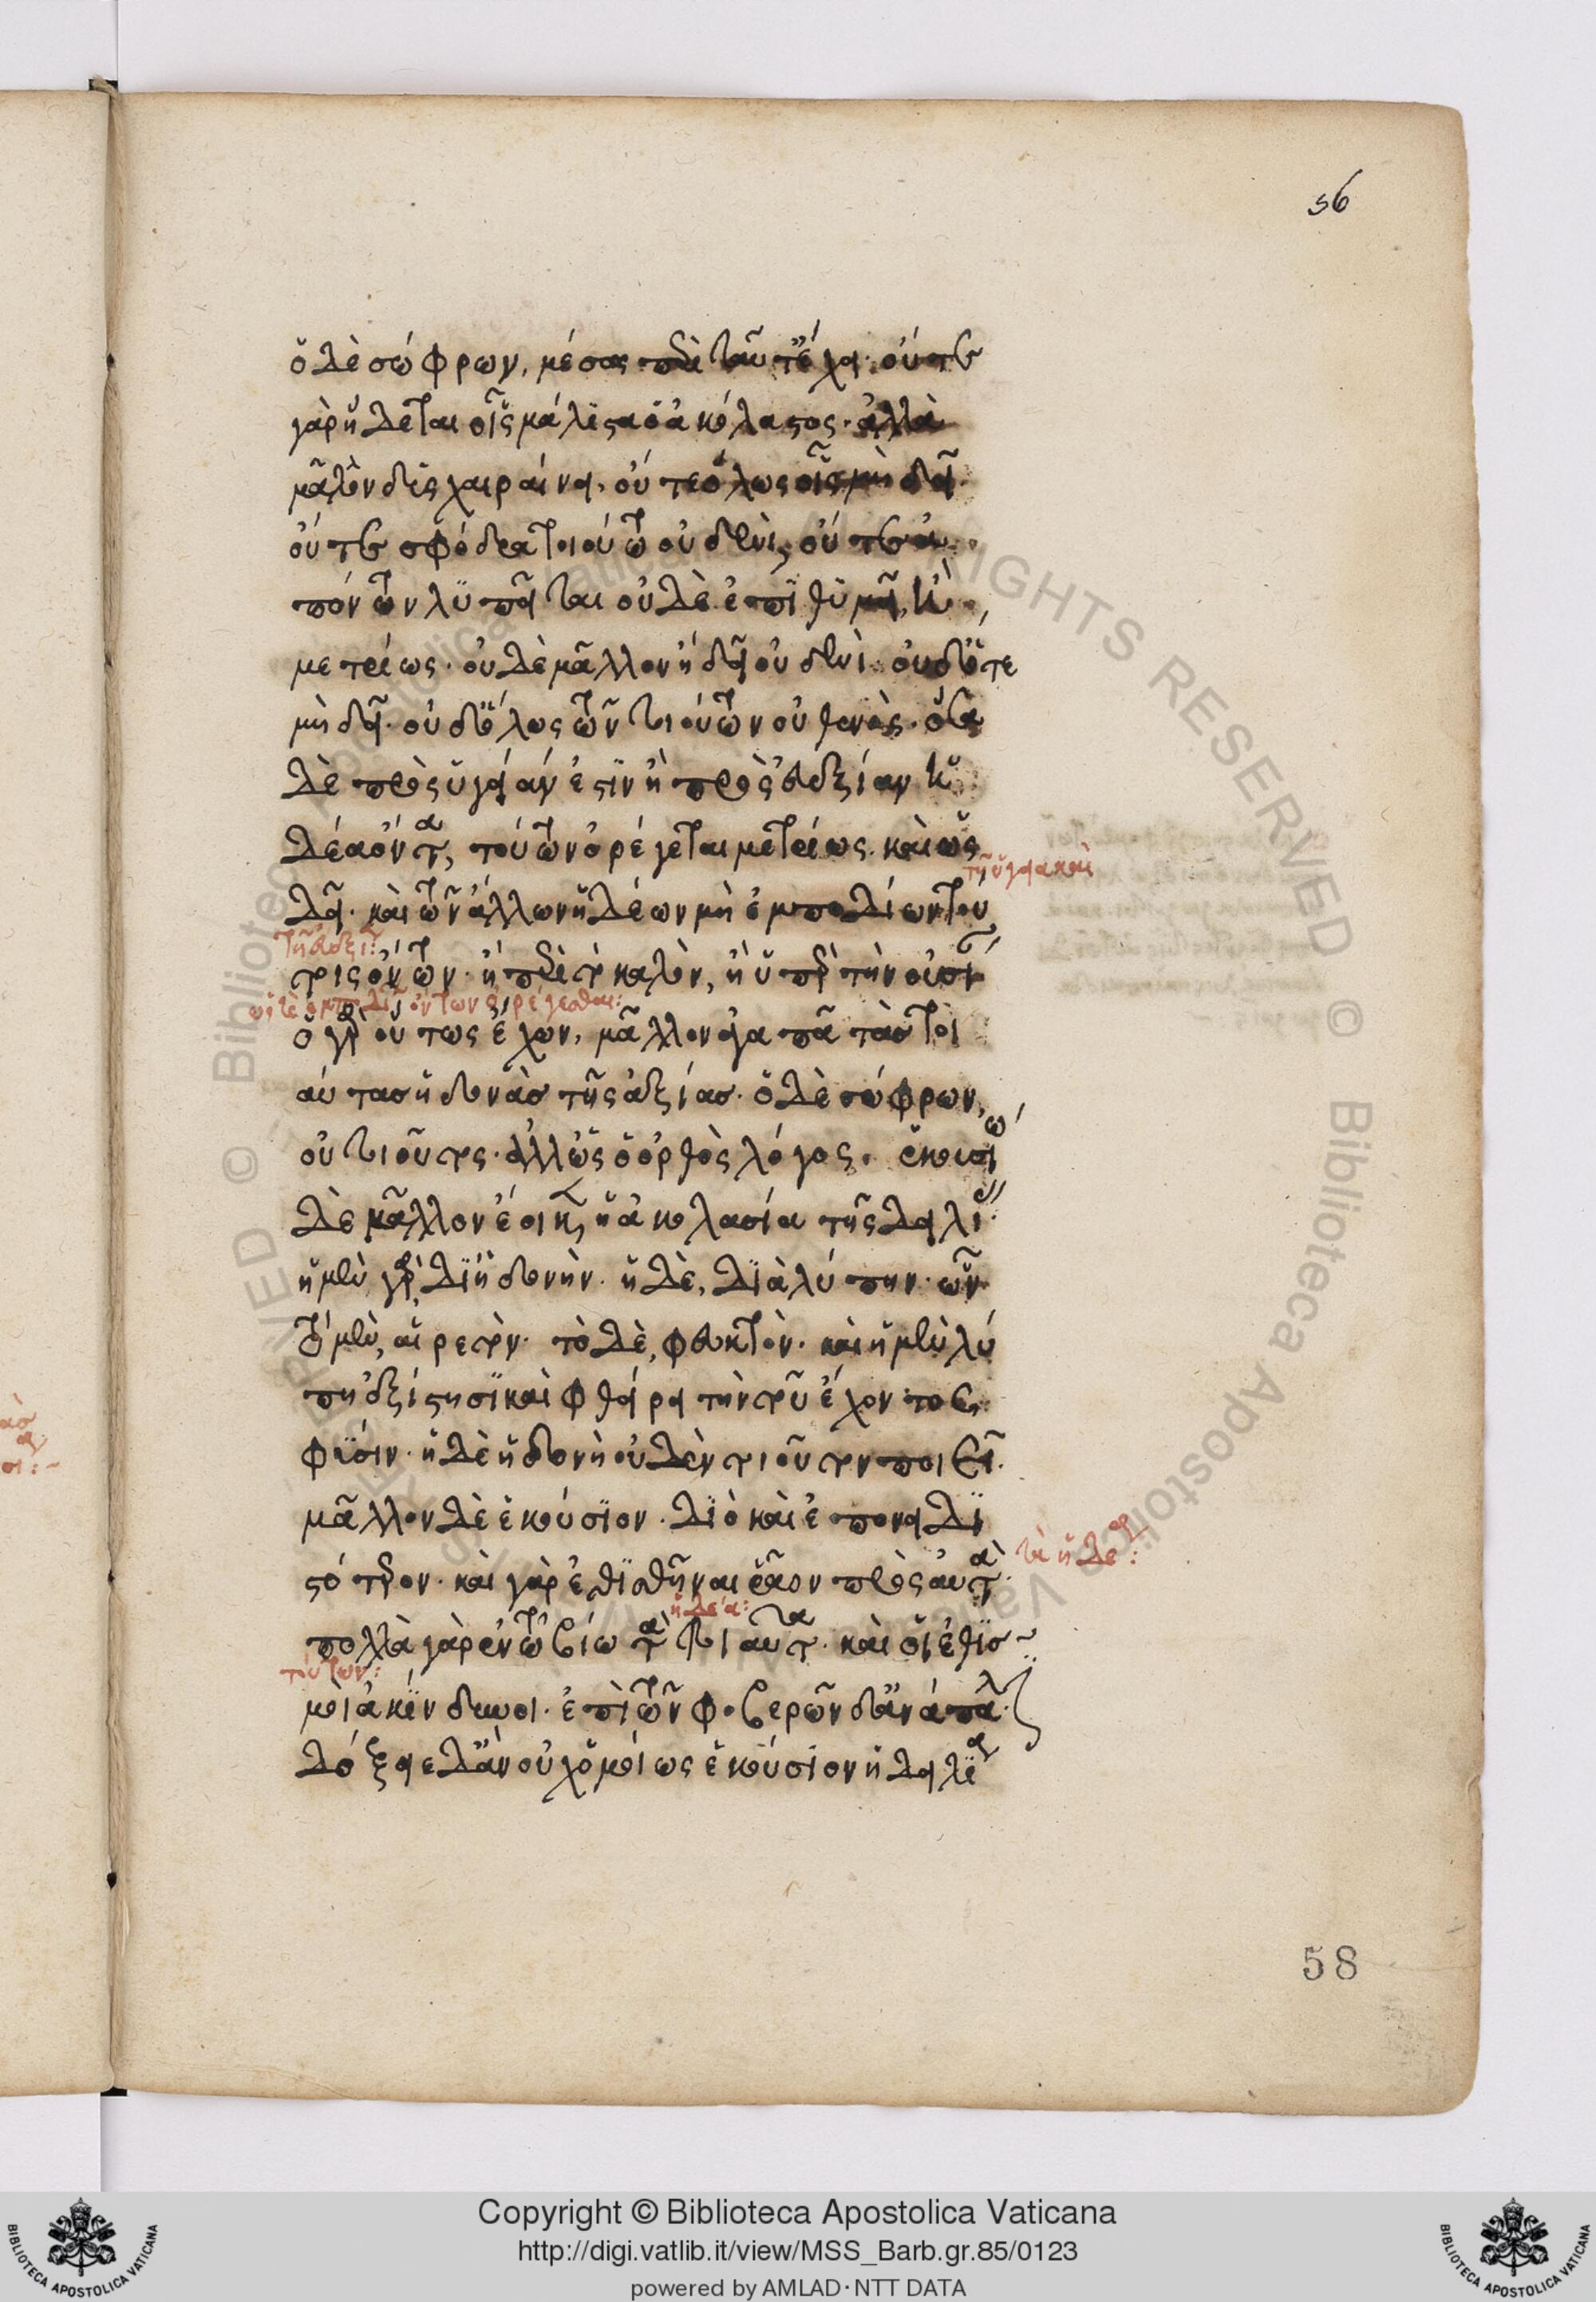 56
ὁ δὲ σώφρων, μέσως περὶ ταῦτ' ἔχει· οὔτε
γὰρ ἥδεται οἷς μάλιστα ὁ ἀκόλαστος· ἀλλὰ
μᾶλλον δυσχεραίνει, οὔτε ὅλως οἷς μὴ δεῖ·
οὔτε σφόδρα τοιούτω οὐδενὶ, οὔτε ἀ
πόντων λυπεῖται οὐδὲ ἐπιθυμεῖ, ἢ
μετρίως· οὐδὲ μᾶλλον ἢ δεῖ οὐδενὶ· οὐδ' ὅτε
μὴ δεῖ· οὐδ' ὅλως τῶν τοιούτων οὐθενὸς· ὅσα
δὲ πρὸς ὑγείαν ἐστὶν ἢ πρὸς εὐεξίαν ἡ
δέα ὄντα, τούτων ὀρέγεται μετρίως καὶ ὡς
τῆ ὑγεία καὶ
δεῖ· καὶ τῶν ἄλλων ἡδέων μὴ ἐμποδίων τού
τῆ εὐεξία:
τοις ὄντων· ἢ παρὰ τὸ καλὸν, ἢ ὑπὲρ τὴν οὐσίαν
ὥστε ἐμποδίων ὄντων ὀρέγεσθαι:
ὁ γὰρ οὕτως ἔχων, μᾶλλον ἀγαπᾶ τὰς τοι
αύτας ἡδονὰς τῆς ἀξίας· ὁ δὲ σώφρων,
οὐ τοιοῦτος· ἀλλ' ὡς ὁ ὀρθὸς λόγος. ἑκουσίω
δὲ μᾶλλον ἔοικεν ἡ ἀκολασία τῆς δειλίας·
ἡ μὲν γὰρ, δι' ἡδονὴν· ἡ δὲ, διὰ λύπην· ὧν
τὸ μὲν, αἱρετὸν· τὸ δὲ, φευκτὸν· καὶ ἡ μὲν λύ
πη ἐξίστησι καὶ φθείρει τὴν τοῦ ἔχοντος
φύσιν· ἡ δὲ ἡδονὴ οὐδὲν τοιοῦτον ποιεῖ·
μᾶλλον δὲ ἑκούσιον· διὸ καὶ ἐπονειδι
στότερον· καὶ γὰρ ἐθισθῆναι ῥᾶον πρὸς αὐτά·
τὰ ἡδέα:
πολλὰ γὰρ ἐν τῶ βίω τὰ τοιαῦτα· καὶ οἱ ἐθισ
ἡδέα:
τούτων:
μοὶ ἀκίνδυνοι· ἐπὶ τῶν φοβερῶν δ' ἀνάπαλιν
δόξειε δ' ἂν οὐχ ὁμοίως ἑκούσιον ἡ δειλία
58
Copyright © Biblioteca Apostolica Vaticana
http://digi.vatlib.it/view/MSS_Barb.gr.85/0123
powered by AMLAD·NTT DATA